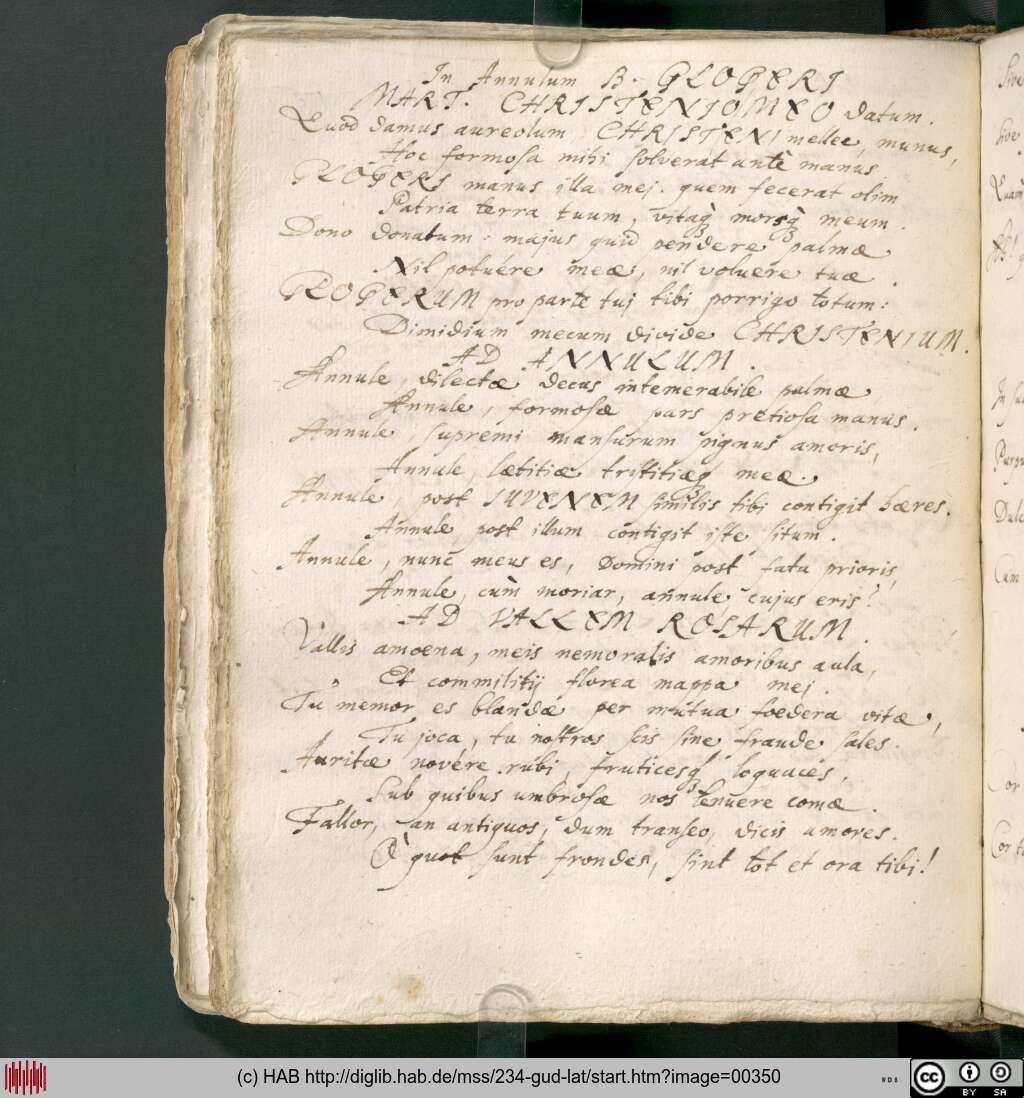 In Annulum B. GLOGERI
MART. CHRISTENIO MEO datum.
Quod damus aureolum, CHRISTENI mellee, munus,
Hoc formosa mihi solverat antè manus.
GLOGERI manus illa mej. quem fecerat olim
Patria terra tuum, vitaq; morsq; meum.
Dono donatum: majus quid pendere palmæ
Nil potuére meæ, nil voluere tuæ.
GLOGERUM pro parte tuj tibi porrigo totum:
Dimidium mecum divide CHRISTENIUM.
AD ANNULUM.
Annule, dilectæ decus intemerabile palmæ
Annule, formosæ pars pretiosa manus.
Annule, supremi mansurum pignus amoris,
Annule, lætitiæ tristitiæq; meæ.
Annule, post IUVENEM similis tibi contigit hæres.
Annule, post illum contigit iste situm.
Annule, nunc meus es, Domini post fata prioris,
Annule, cùm moriar, annule cujus eris?
AD VALLEM ROSARUM.
Vallis amoena, meis nemoralis amoribus aula,
Et commilitij florea mappa mej.
Tu memor es blandæ per mutua foedera vitæ,
Tu joca, tu nostros scis sine fraude sales.
Auritæ novére rubi, fruticesq; loquaces,
Sub quibus umbrosæ nos tenuere comæ.
Fallor, an antiquos, dum transeo, dicis amores.
O quot sunt frondes, sint tot et ora tibi!
(c) HAB http://diglib.hab.de/mss/234-gud-lat/start.htm?image=00350
cc BY SA